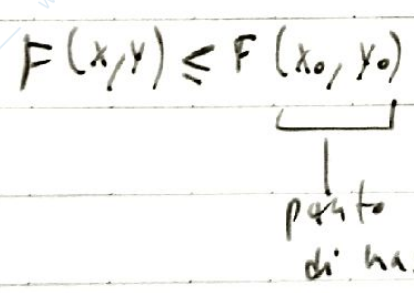 F(x,y) ≤ F(x₀,y₀)
punto
di